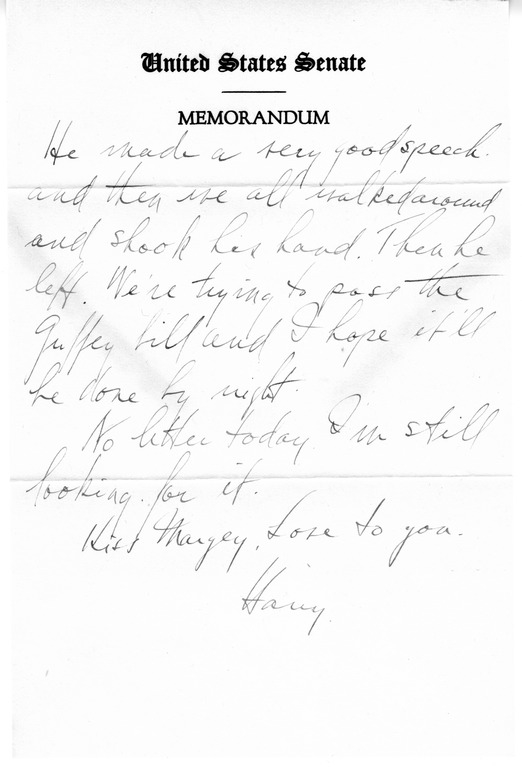 United States Senate
MEMORANDUM
He made a very good speech.
and then we all walked around
and shook his hand. Then he
left. We're trying to pass the
Guffey bill and I hope it'll
be done by night.
No letter today I'm still
looking for it.
Kiss Margey, Love to you.
Harry